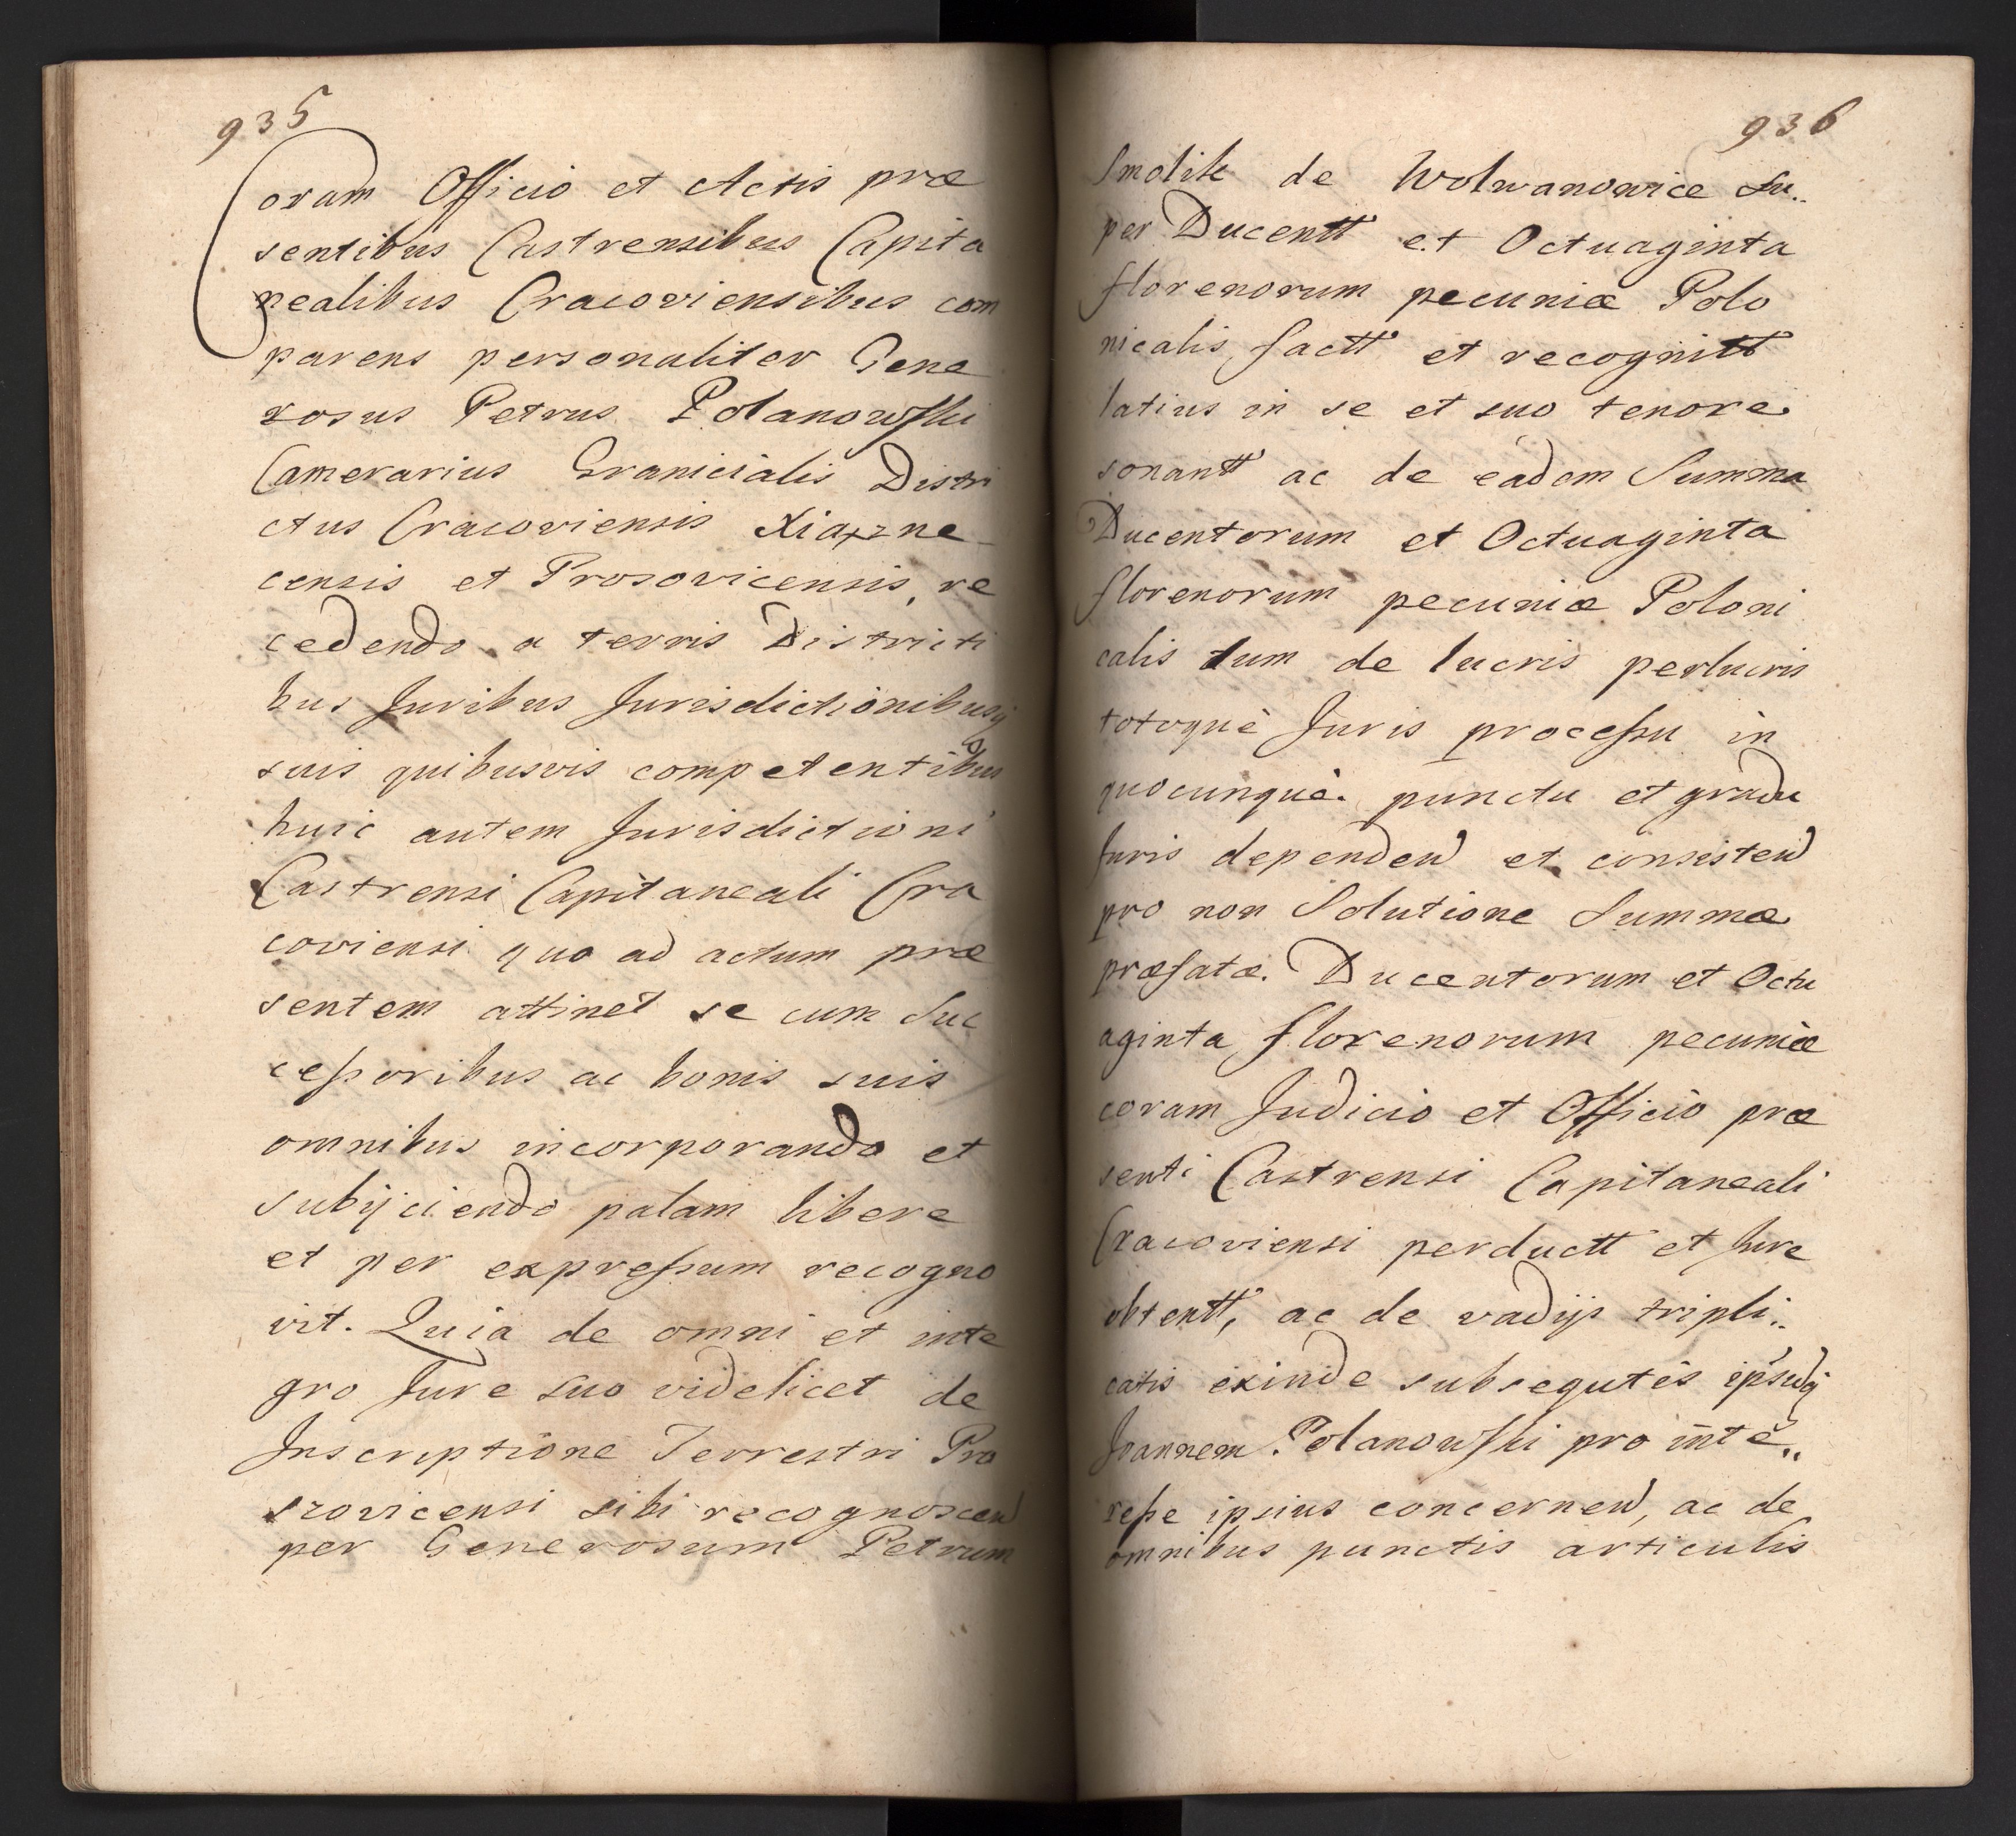 935
Coram Officio et Actis præ
sentibus Castrensibus Capita
nealibus Cracoviensibus com
parens personaliter Gene
rosus Petrus Polanowski
Camerarius Granicialis Distri
ctus Cracoviensis Xiązne
censis et Prosovicensis, re
cedendo a terris Districti
bus Juribus Jurisdictionibusq
suis quibusvis competentibus
huic autem Jurisdictioni
Castrensi Capitaneali Cra
coviensi quo ad actum præ
sentem attinet se cum Suc
cessoribus ac bonis suis
omnibus incorporando et
subijciendo palam libere
et per expressum recogno
vit. Quia de omni et inte
gro Jure suo videlicet de
Inscriptione Terrestri Pro
szovicensi sibi recognoscen
per Generosum Petrum
936
Smolik de Wolwanowice Su„
per Ducentt et Octuaginta
florenorum pecuniæ Polo
nicalis factt et recognitt
latius in se et suo tenore
sonantt ac de eadem Summa
Ducentorum et Octuaginta
florenorum pecuniæ Poloni
calis tum de lucris perlucris
totoquè Juris processu in
quocunquè punctu et gradu
Juris dependen et consisten
pro non Solutione Summæ
præfatæ Ducentorum et Octu
aginta florenorum pecuniæ
coram Judicio et Officio præ
senti Castrensi Capitaneali
Cracoviensi perductt et Jure
obtentt, ac de vadijs tripli„
catis exinde subsequtis ipsuq
Joannem Polanowski pro inte„
resse ipsius concernen, ac de
omnibus punctis articulis